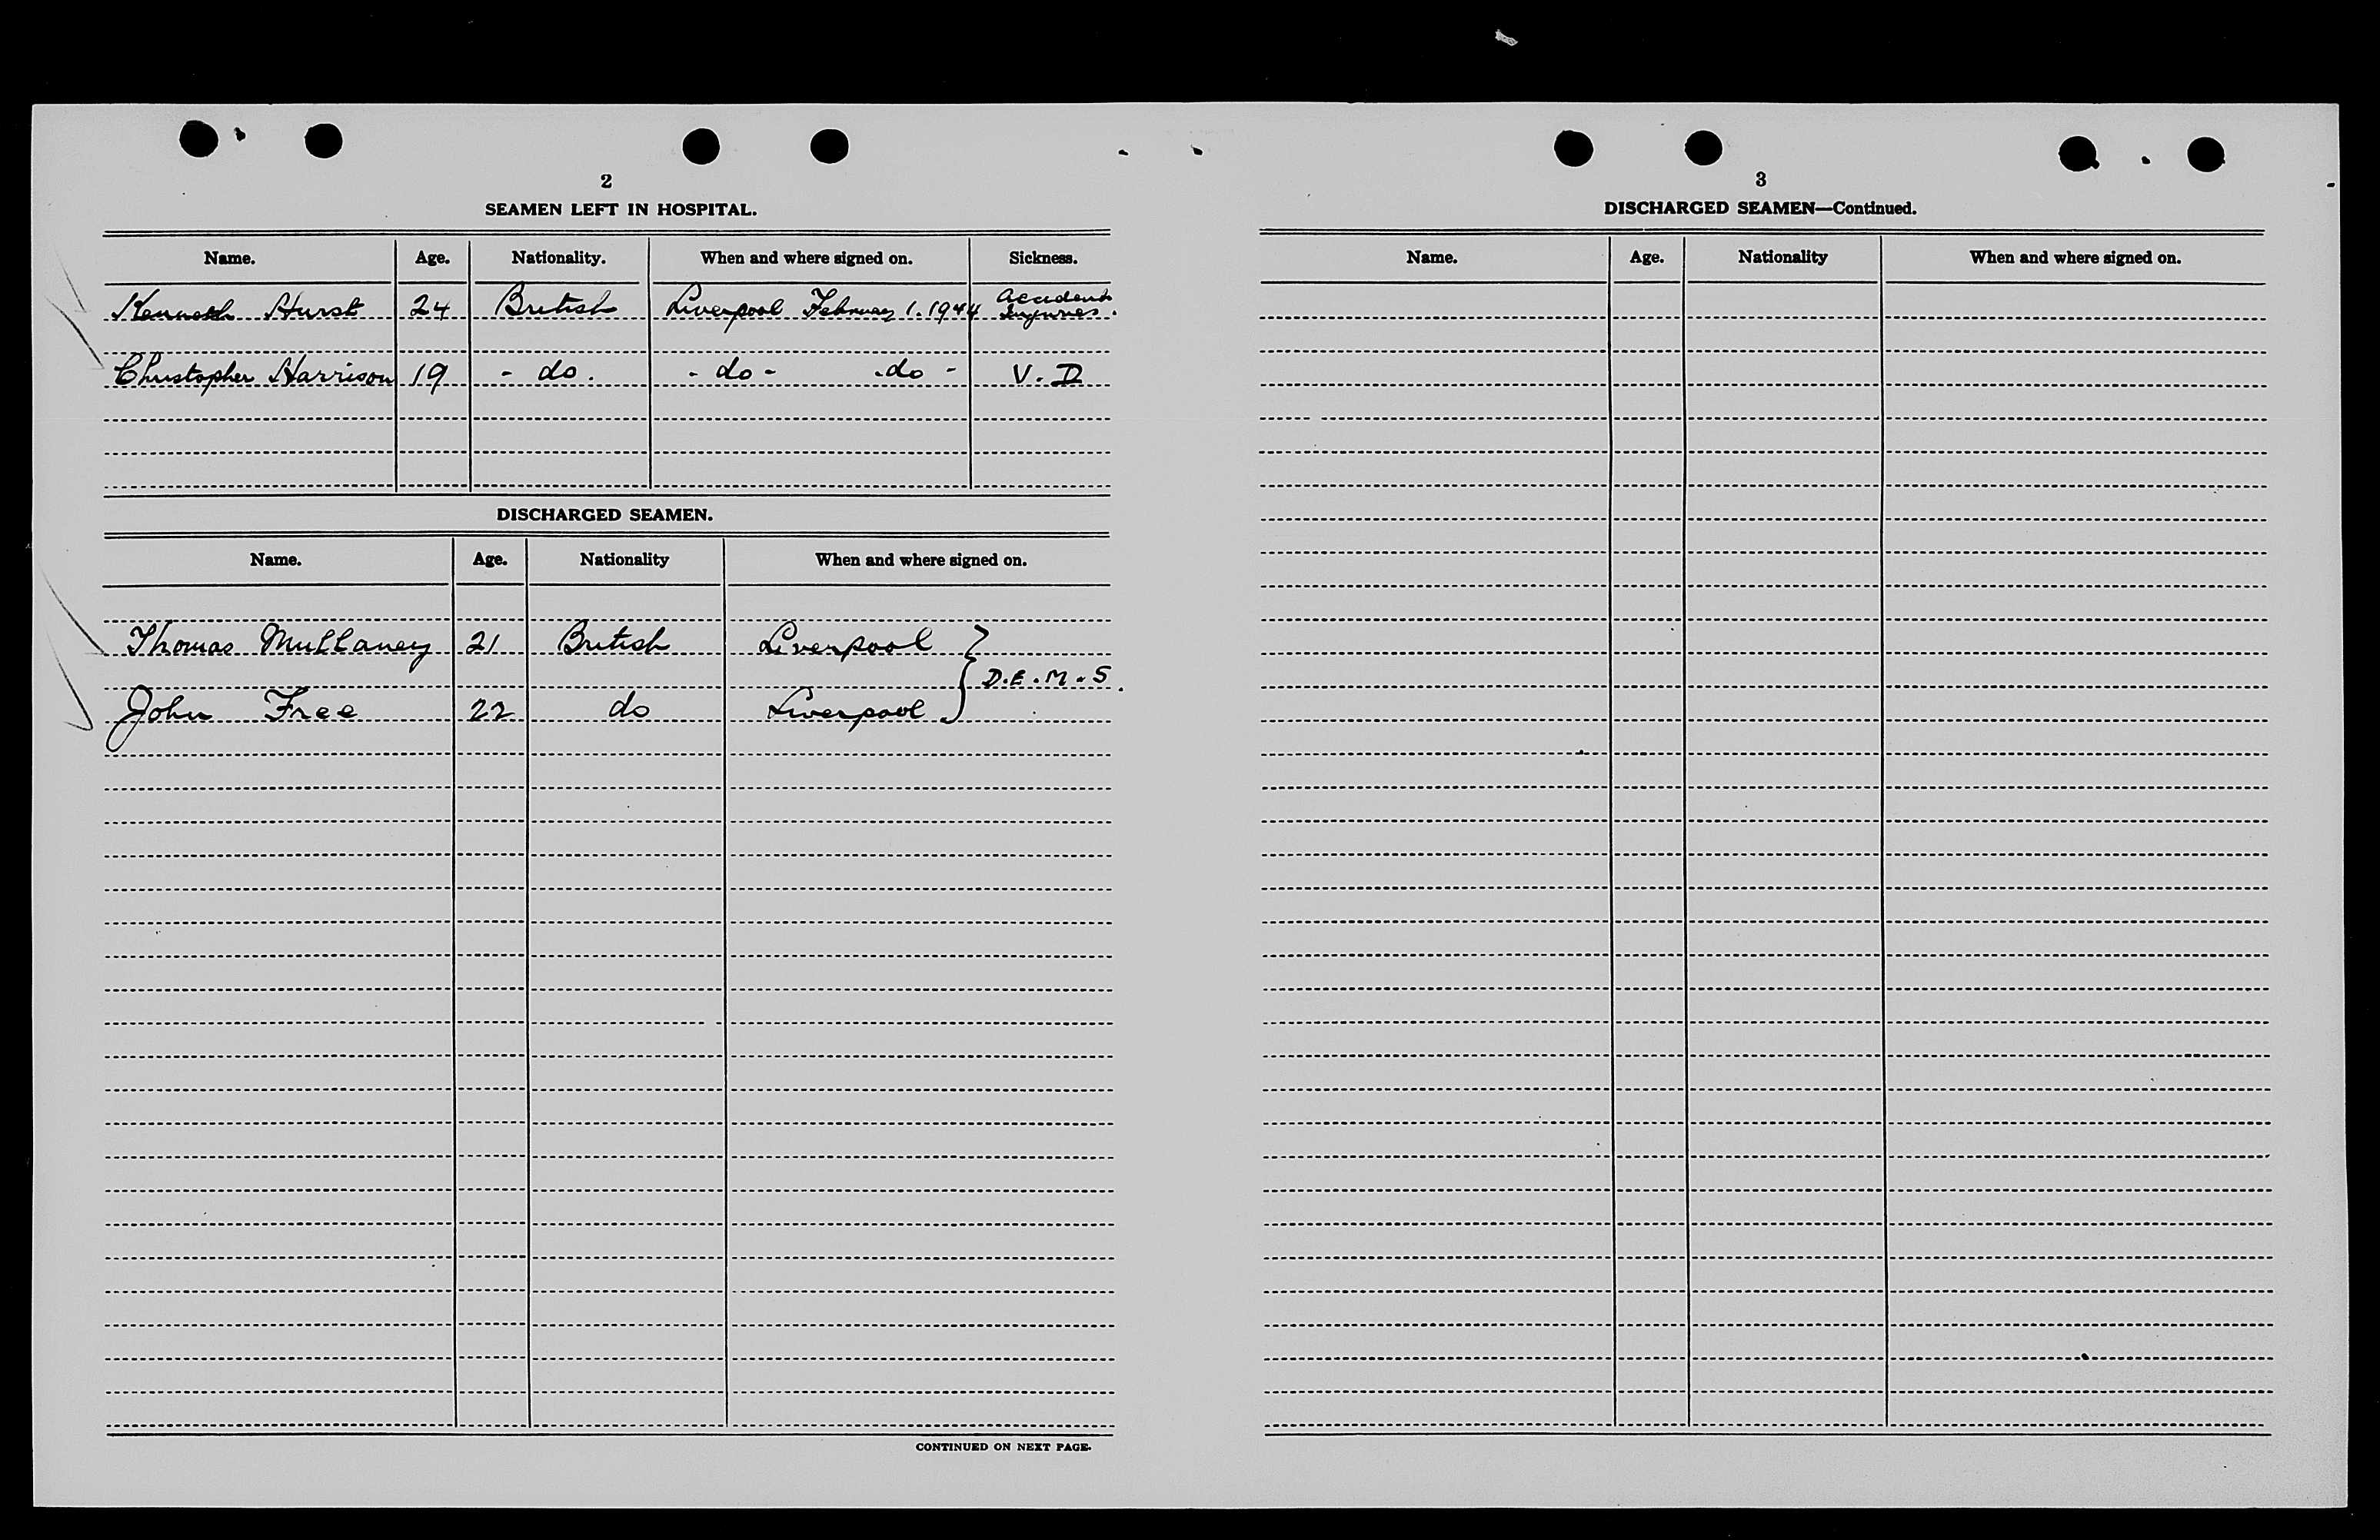 2
SEAMEN LEFT IN HOSPITAL.
Name. Age. Nationality. When and where signed on. Sickness.
Kenneth Hurst 24 British Liverpool February 1. 1944 Accident Injuries.
Christopher Harrison 19 - do. - do - - do - V. D
DISCHARGED SEAMEN.
Name. Age. Nationality When and where signed on.
Thomas Mullaney 21 British Liverpool
D.E.M.S.
John Free 22 do Liverpool
CONTINUED ON NEXT PAGE.
3
DISCHARGED SEAMEN—Continued.
Name. Age. Nationality When and where signed on.